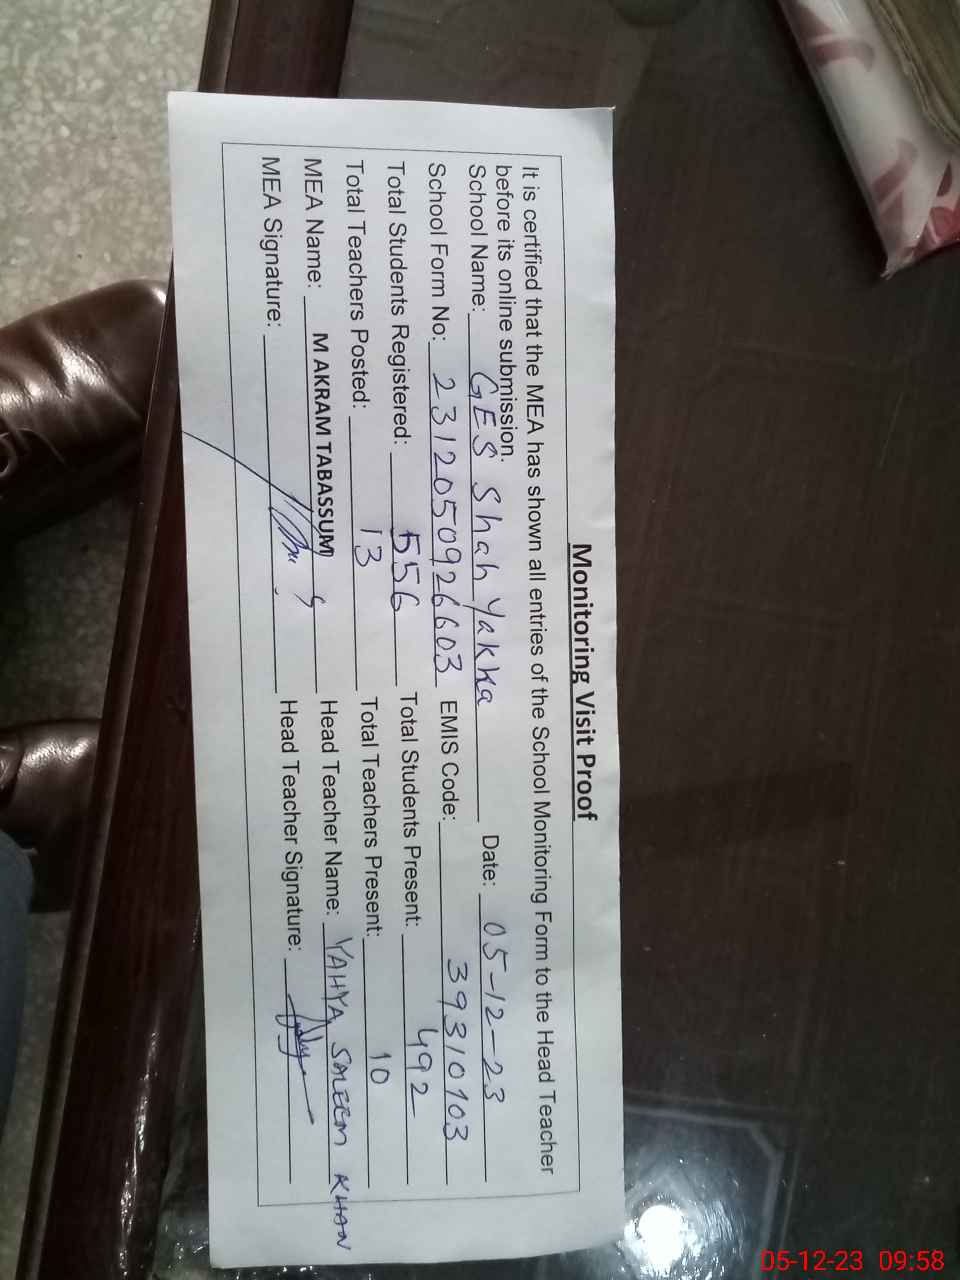 Monitoring Visit Proof
It is certified that the MEA has shown all entries of the School Monitoring Form to the Head Teacher
before its online submission.
School Name: GES Shah Yakka Date: 05-12-23
School Form No: 2312050926603 EMIS Code: 39310103
Total Students Registered: 556 Total Students Present: 492
Total Teachers Posted: 13 Total Teachers Present: 10
MEA Name: M AKRAM TABASSUM Head Teacher Name: YAHYA SALEEM KHAN
MEA Signature: Head Teacher Signature:
05-12-23 09:58